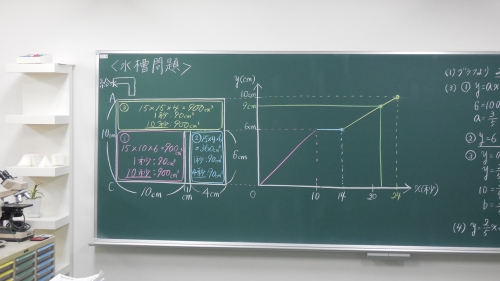 〈水槽問題〉
給水
A
③ 15×15×4=900cm³
1秒:90cm³
10秒:900cm³
①
15×10×6=900cm³
1秒:90cm³
10秒:900cm³
②15×4×6
=360cm³
1秒:90cm³
4秒:
10cm
6cm
C
10cm
1
cm
4cm
y(cm)
10cm
9cm
6cm
0
10
14
20
24
x(秒)
(1) グラフより
(3) ① y=ax
a=3/5
② y=6
③
(4) y=2/5x